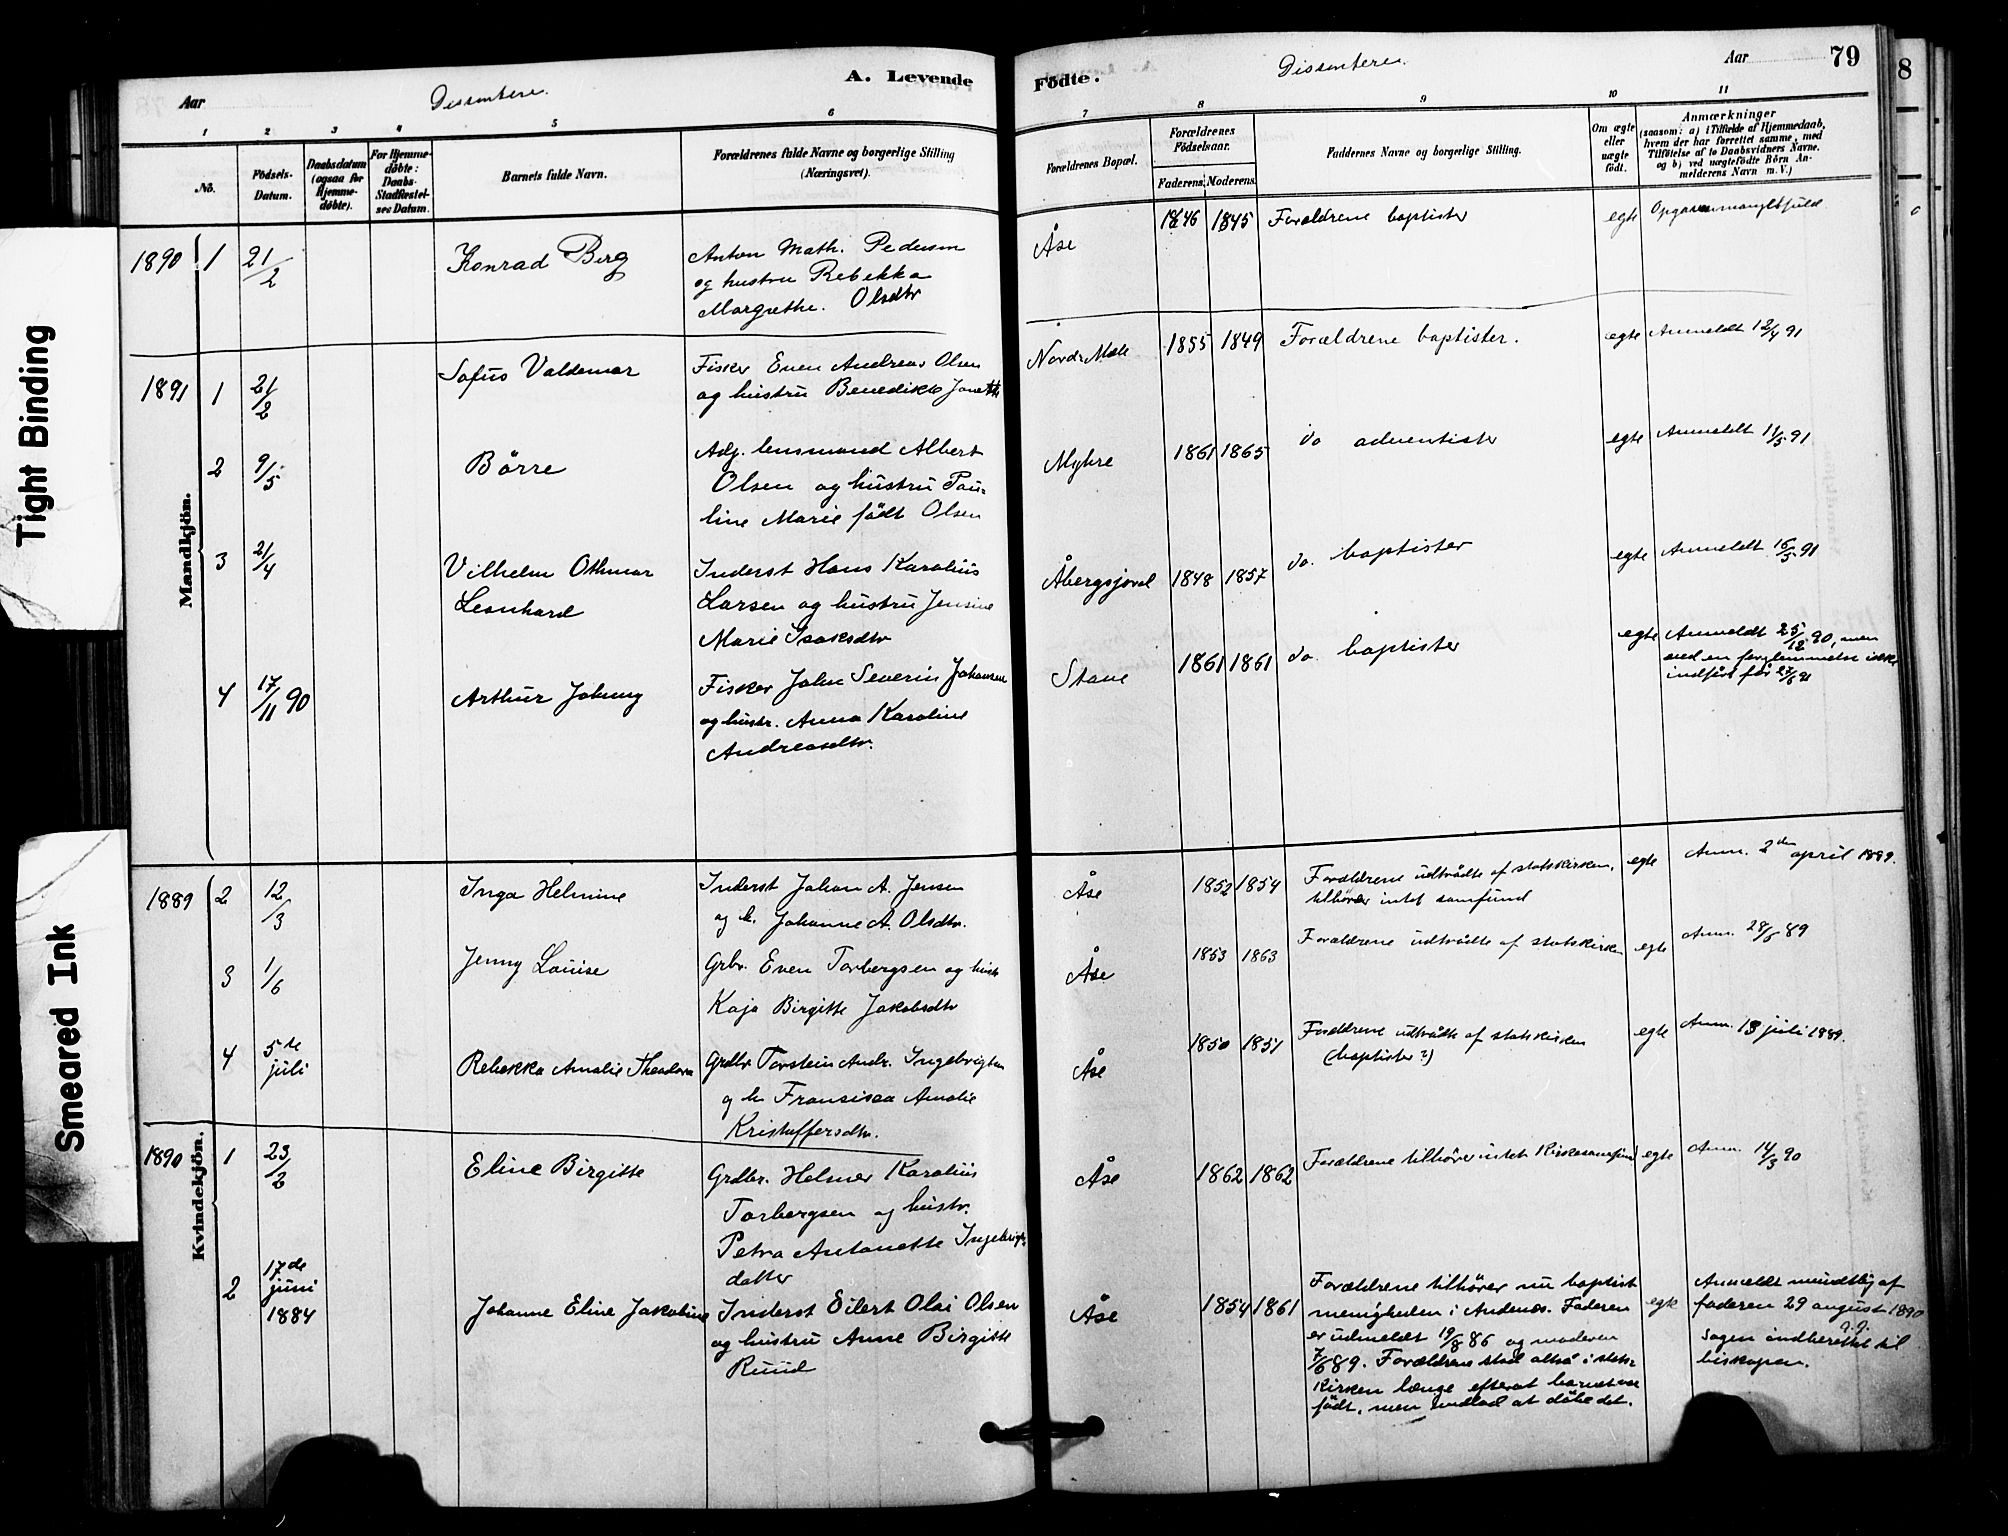 Tight Binding
Smeared Ink
Aar
Dissentere.
A. Levende
1 2 3 4 5 6
No.
Födsels-Datum.
Daabsdatum (ogsaa for Hjemme-döbte).
For Hjemme-döbte: Daabs-Stadfæstel-ses Datum.
Barnets fulde Navn.
Forældrenes fulde Navne og borgerlige Stilling (Næringsvei).
Födte.
Dissentere.
Aar
79
8
7 8 9 10 11
Forældrenes Bopæl.
Forældrenes Födselsaar.
Faderens. Moderens.
Faddernes Navne og borgerlige Stilling.
Om ægte eller uægte födt.
Anmærkninger
(saasom: a) i Tilfælde af Hjemmedaab, hvem der har forrettet samme, med Tilföielse af to Daabsvidners Navne. og b) ved uægtefödte Börn An-melderens Navn m. V.)
Mandkjön.
1890 1 21/2 Konrad Berg
Anton Math. Pedersen
og hustru Rebekka
Margrethe. Olsdtr
Åse 1846 1845 Forældrene baptister egte Opgaven mangelfuld.
1891 1 21/2 Sofus Valdemar
Fisker Even Andreas Olsen
og hustru Benedikte Janette
Nordr. Mele 1855 1849 Forældrene baptister. egte Anmeldt 12/4 91
2 9/5 Börre
Adj. lensmand Albert
Olsen og hustru Pau-
line Marie födt Olsen
Myhre 1861 1865 do adventister egte Anmeldt 11/5 91
3 21/4 Vilhelm Othmar
Leonhard
Inderst Hans Karolius
Larsen og hustru Jensine
Marie Isaksdtr
Åbergsjord 1848 1857 do. baptister egte Anmeldt 16/5 91
4 17/11 90 Arthur Johnny
Fisker John Severin Johansen
og hustr. Anna Karoline
Andreasdtr.
Stave 1861 1861 do. baptister egte Anmeldt 25/12 90, men
ved en forglemmelse ikke
indfört för 27/6 91
Kvindekjön.
1889 2 12/3 Inga Helmine
Inderst Johan A. Jensen
og h. Johanne A. Olsdtr.
Åse 1852 1854 Forældrene udtrådte af statskirken,
tilhörer intet samfund
egte Anm. 2den april 1889.
3 1/6 Jenny Louise
Grbr. Even Torbergsen og hustr
Kaja Birgitte Jakobsdtr
Åse 1853 1863 Forældrene udtrådte af statskirken egte Anm. 28/6 89
4 5te juli Rebekka Amalie Theodora
Grdbr Torstein Andr. Ingebrigtsen
og h. Fransisca Amalie
Kristoffersdtr.
Åse 1850 1851 Forældrene udtrådte af statskirken
(baptister?)
egte Anm. 13 juli 1889.
1890 1 23/2 Eline Birgitte
Grdbr. Helmer Karolius
Torbergsen og hustr.
Petra Antonette Ingebrigts
datter
Åse 1862 1862 Forældrene tilhörer intet Kirkesamfund egte Anm. 14/3 90
2 17de juni 1884 Johanne Eline Jakobine
Inderst Eilert Olai Olsen
og hustru Anne Birgitte
Ruud
Åse 1854 1861 Forældrene tilhörer nu baptist
menigheden i Andenes. Faderen
er udmeldt 19/8 86 og moderen
7/6 89. Forældrene stod altså i stats-
Kirken længe efterat barnet var
födt, men undlod at döbe det.
egte Anmeldt mundtlig af
faderen 29 august 1890
Sagen indberettet til
biskopen.